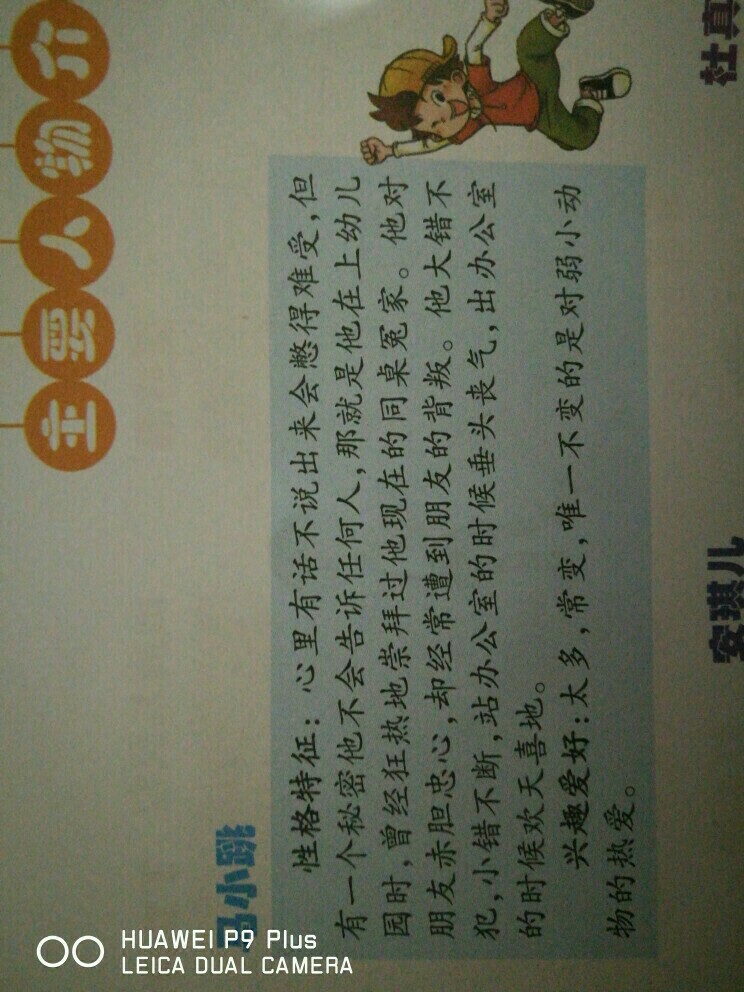 主要人物介
马小跳
性格特征：心里有话不说出来会憋得难受，但
有一个秘密他不会告诉任何人，那就是他在上幼儿
园时，曾经狂热地崇拜过他现在的同桌冤家。他对
朋友赤胆忠心，却经常遭到朋友的背叛。他大错不
犯，小错不断，站办公室的时候垂头丧气，出办公室
的时候欢天喜地。
兴趣爱好：太多，常变，唯一不变的是对弱小动
物的热爱。
安琪儿
杜真
HUAWEI P9 Plus
LEICA DUAL CAMERA